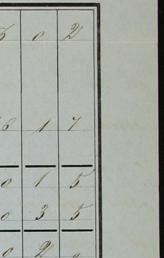 5 0 2
6 1 7
0 1 5
0 3 5
0 9